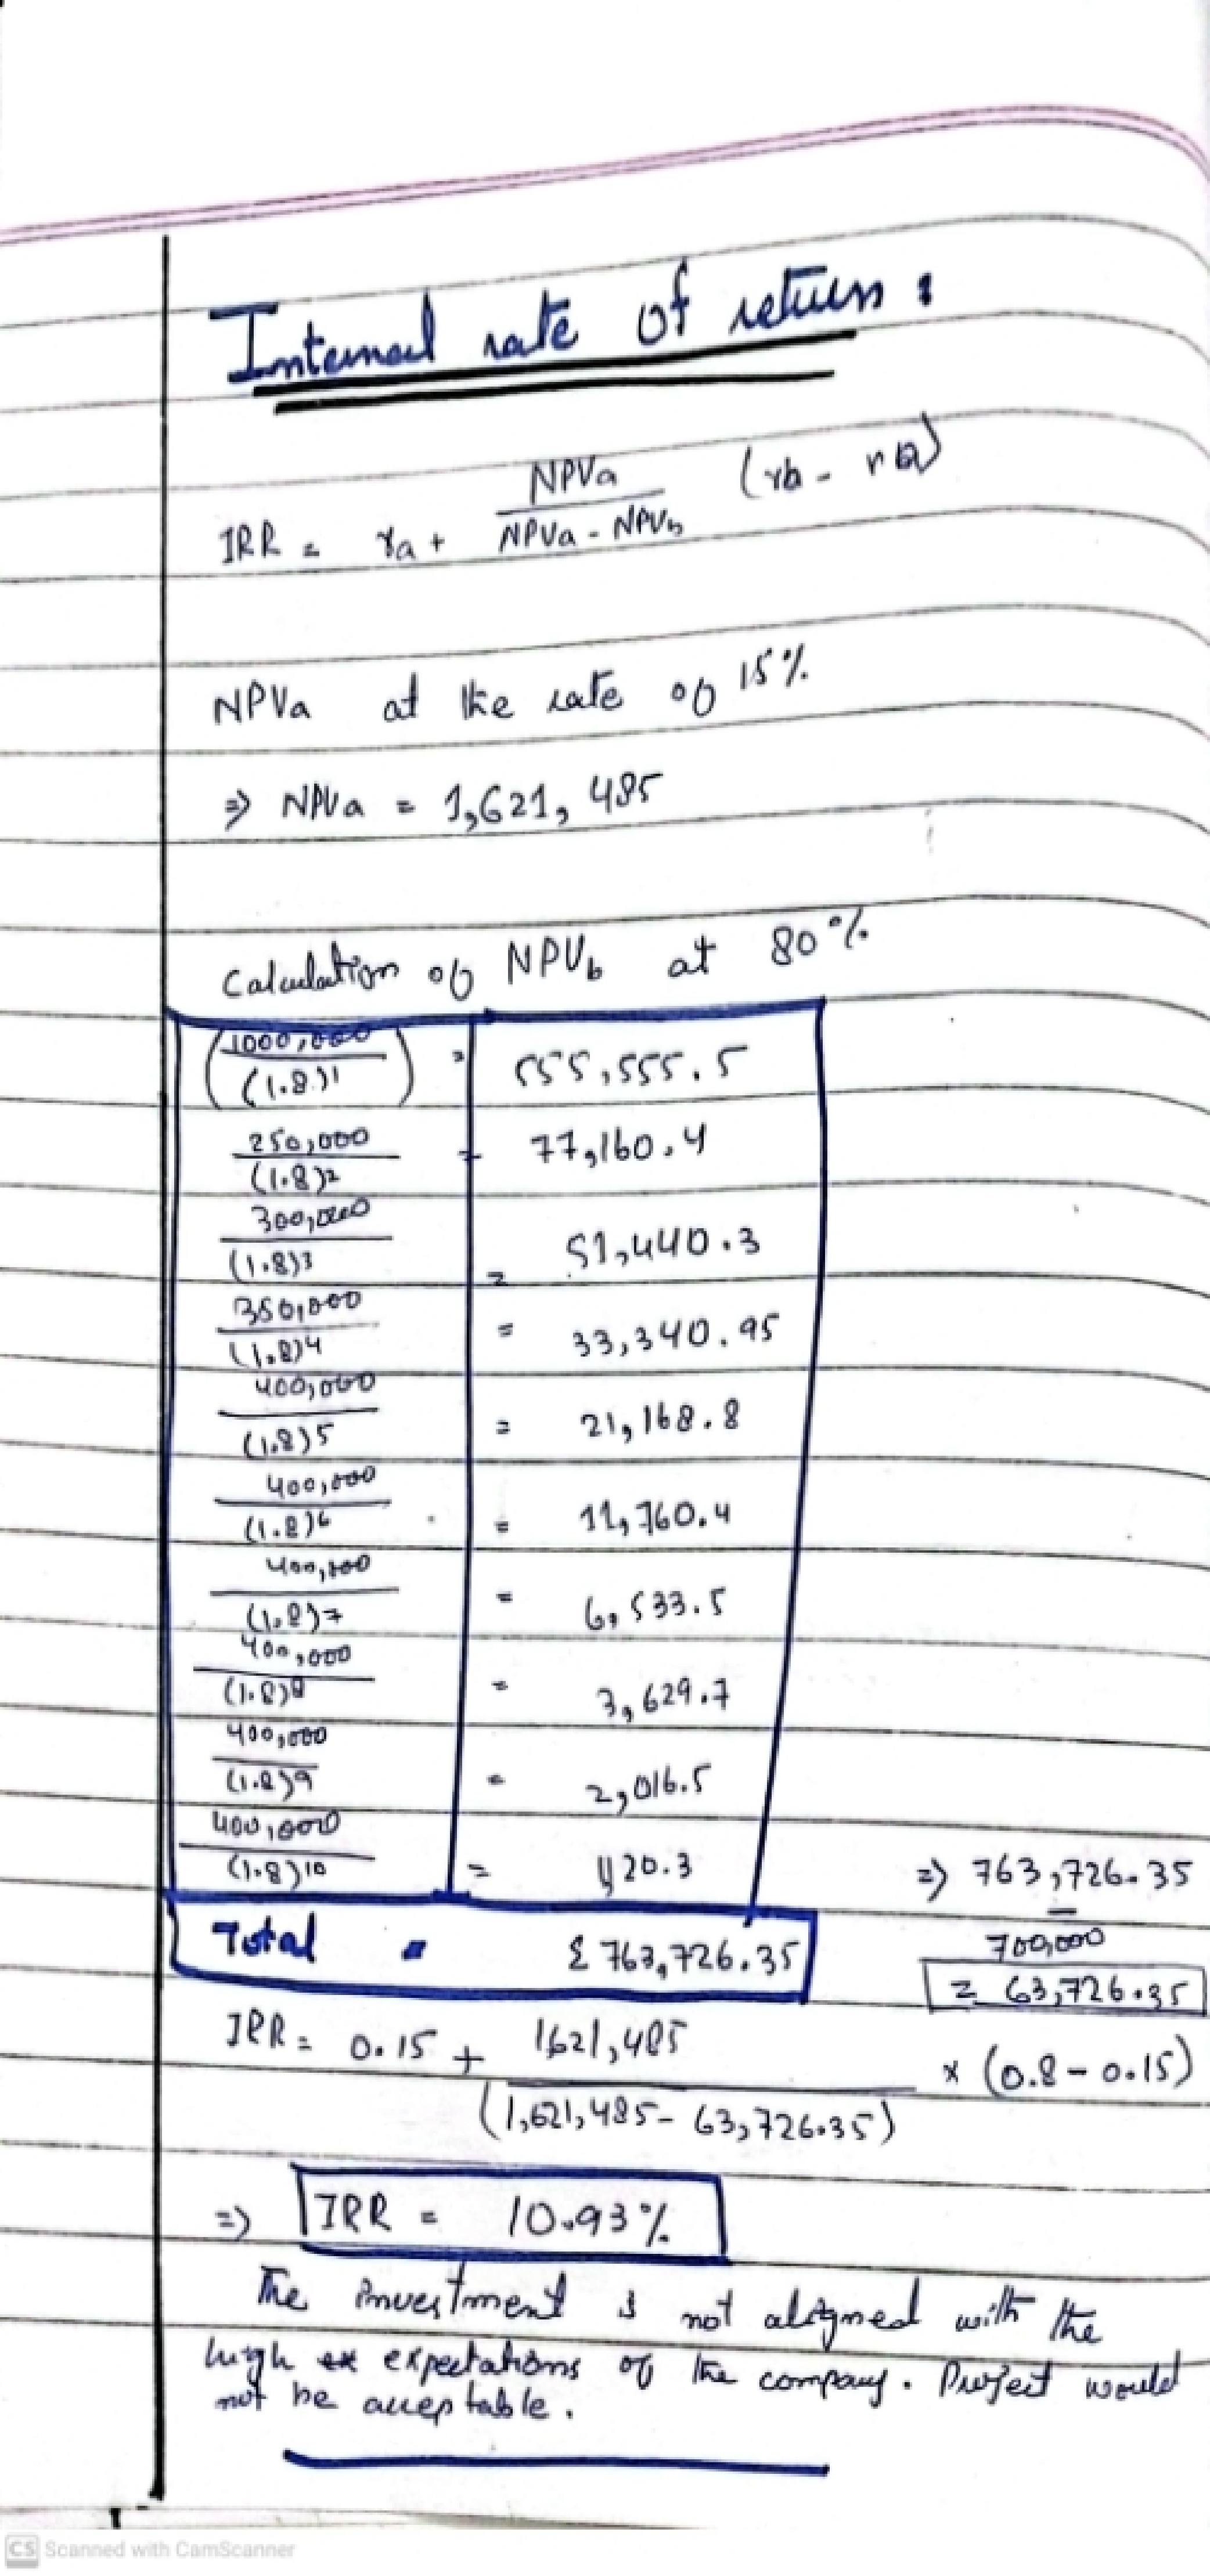 Internal rate of return :
IRR = ra + NPVa / NPVa - NPVb (rb - ra)
NPVa at the rate of 15%
=> NPVa = 1,621,485
Calculation of NPVb at 80%
(1000,000 / (1.8)1) = 555,555.5
250,000 / (1.8)2 = 77,160.4
300,000 / (1.8)3 = 51,440.3
350,000 / (1.8)4 = 33,340.95
400,000 / (1.8)5 = 21,168.8
400,000 / (1.8)6 = 11,760.4
400,000 / (1.8)7 = 6,533.5
400,000 / (1.8)8 = 3,629.7
400,000 / (1.8)9 = 2,016.5
400,000 / (1.8)10 = 1120.3
Total = £ 763,726.35
=> 763,726.35
-
700,000
= 63,726.35
IRR = 0.15 + 1621,485 / (1,621,485 - 63,726.35) x (0.8 - 0.15)
=> IRR = 10.93%
The investment is not aligned with the
high expectations of the company. Project would
not be acceptable.
CS Scanned with CamScanner